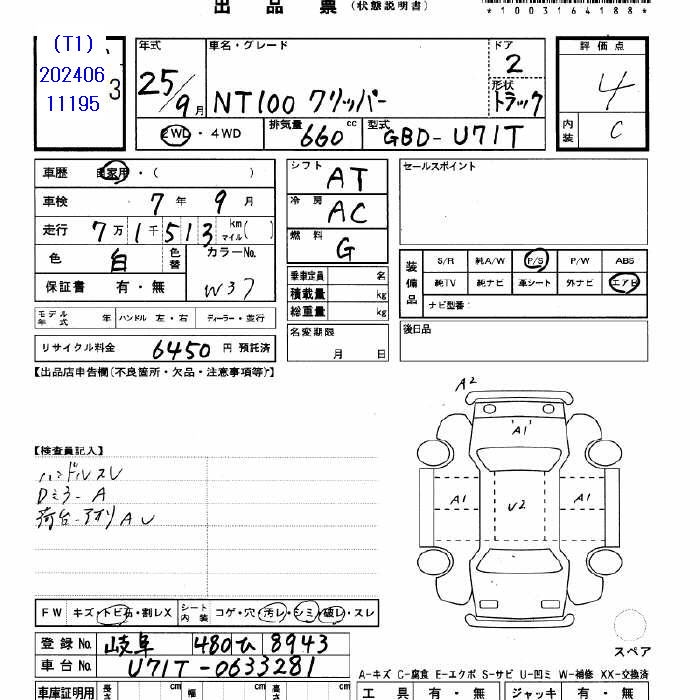 出品票 (状態説明書)
*1003164188*
(T1)
202406
11195
3
年式
25/9月
車名・グレード
NT100 クリッパー
ドア
2
形状
トラック
評価点
4
内装
C
2WD・4WD
排気量 660 cc
型式 GBD-U71T
車歴 自家用・( )
車検 7年 9月
走行 7万1千513 km マイル( )
色 白 色替
カラーNo. W37
保証書 有・無
シフト AT
冷房 AC
燃料 G
乗車定員 名
積載量 kg
総重量 kg
セールスポイント
装備品
S/R 純A/W P/S P/W ABS
純TV 純ナビ 革シート 外ナビ エアB
ナビ型番:
モデル年式 年 ハンドル 左・右 ディーラー・並行
名変期限
月 日
後日品
リサイクル料金 6450 円 預託済
【出品店申告欄(不良箇所・欠品・注意事項等)】
A2
A1
A1 U2 A1
【検査員記入】
ハンドルスレ
Dミラ-A
荷台-アオリAU
FW キズ・トビ石・割レX シート内装 コゲ・穴・汚レ・シミ・破レ・スレ
登録No. 岐阜 480 ひ 8943
スペア
車台No. U71T-0633281
A-キズ C-腐食 E-エクボ S-サビ U-凹ミ W-補修 XX-交換済
車庫証明用 長さ cm 幅 cm 高さ cm
工具 有・無 ジャッキ 有・無